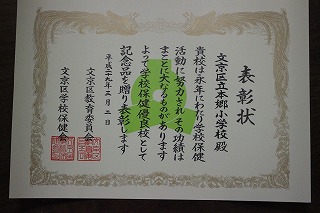 表彰状
文京区立本郷小学校 殿
貴校は永年にわたり学校保健
活動に努力され その功績は
まことに大なるものがあります
よって学校保健優良校として
記念品を贈り表彰します
平成二十九年二月二日
文京区教育委員会
文京区学校保健会